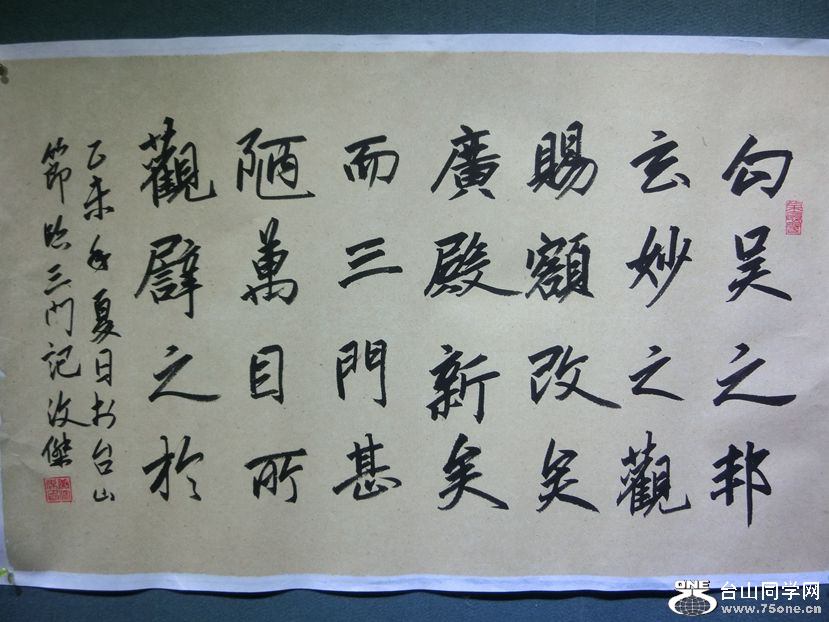 勾吴之邦
玄妙之觀
賜額改矣
廣殿新矣
而三門甚
陋萬目所
觀譬之於
乙未年夏日於台山
節臨三門記汝傑
ONE
台山同学网
www.75one.cn